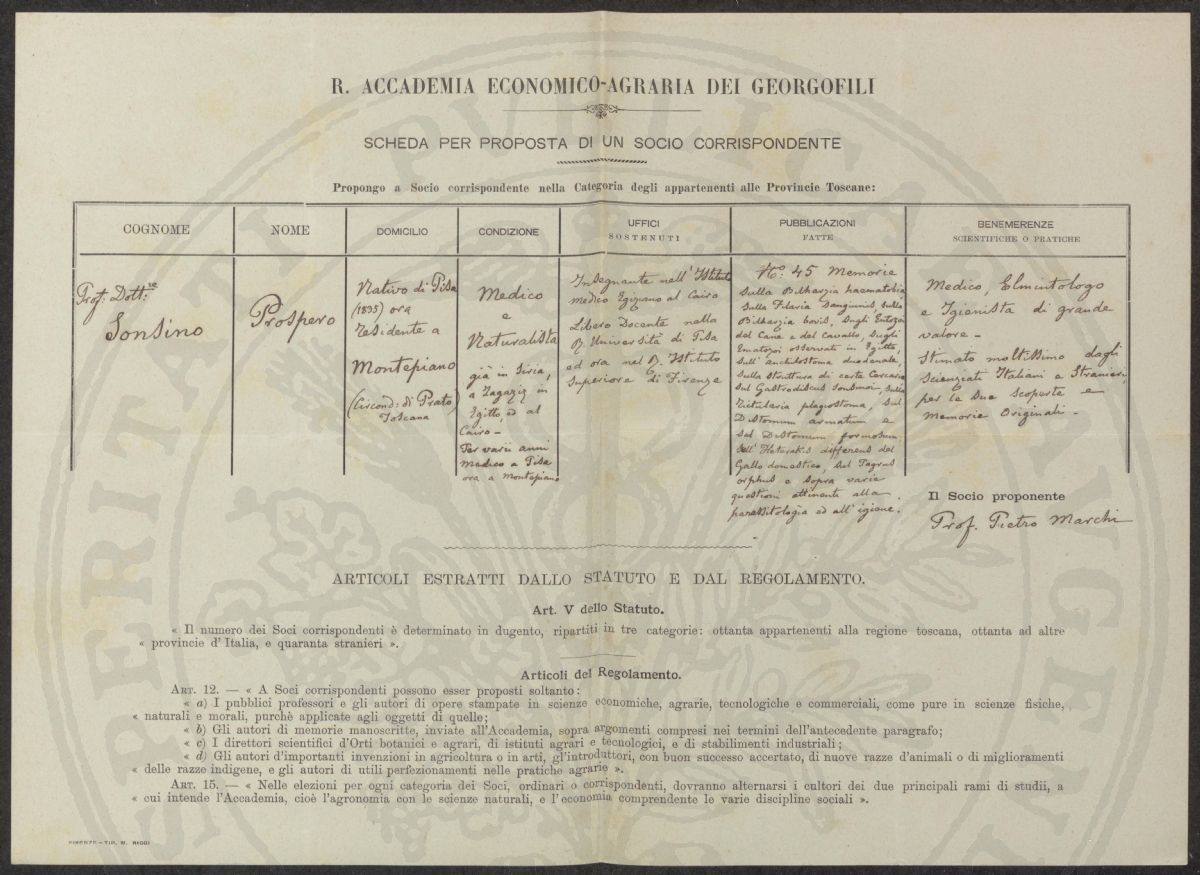 R. ACCADEMIA ECONOMICO-AGRARIA DEI GEORGOFILI
SCHEDA PER PROPOSTA DI UN SOCIO CORRISPONDENTE
Propongo a Socio corrispondente nella Categoria degli appartenenti alle Provincie Toscane:
COGNOME
NOME
DOMICILIO
CONDIZIONE
UFFICI
SOSTENUTI
PUBBLICAZIONI
FATTE
BENEMERENZE
SCIENTIFICHE O PRATICHE
Prof. Dott.re
Sonsino
Prospero
Nativo di Pisa
(1835) ora
residente a
Montepiano
(Circond: di Prato)
Toscana
Medico
e
Naturalista
già in Siria,
a Zagazig in
Egitto, ed al
Cairo -
Per varii anni
medico a Pisa
ora a Montepiano
Insegnante nell'Istituto
medico Egiziano al Cairo
Libero Docente nella
R. Università di Pisa
ed ora nel R. Istituto
Superiore di Firenze
No. 45 Memorie
sulla Bilharzia haematobia
sulla Filaria Sanguinis, sulla
Bilharzia bovis, sugli Entozoi
del Cane e del Cavallo, sugli
Ematozoi osservati in Egitto,
sull'Anchilostoma duodenale,
sulla struttura di certe Cercarie
sul Gastrodiscus Sonsinoi, sulla
Rictularia plagiostoma, sul
Distomum armatum e
sul Distomum formosum,
sull'Heterakis differens del
Gallo domestico, sul Pagrus
orphus e sopra varie
questioni attinenti alla
parassitologia ed all'igiene.
Medico, Elmintologo
e Igienista di grande
valore -
Stimato moltissimo dagli
scienziati Italiani e Stranieri,
per le sue scoperte e
memorie Originali -
Il Socio proponente
Prof. Pietro Marchi
ARTICOLI ESTRATTI DALLO STATUTO E DAL REGOLAMENTO.
Art. V dello Statuto.
« Il numero dei Soci corrispondenti è determinato in dugento, ripartiti in tre categorie: ottanta appartenenti alla regione toscana, ottanta ad altre
« provincie d'Italia, e quaranta stranieri ».
Articoli del Regolamento.
ART. 12. — « A Soci corrispondenti possono esser proposti soltanto:
« a) I pubblici professori e gli autori di opere stampate in scienze economiche, agrarie, tecnologiche e commerciali, come pure in scienze fisiche,
« naturali e morali, purchè applicate agli oggetti di quelle;
« b) Gli autori di memorie manoscritte, inviate all'Accademia, sopra argomenti compresi nei termini dell'antecedente paragrafo;
« c) I direttori scientifici d'Orti botanici e agrari, di istituti agrari e tecnologici, e di stabilimenti industriali;
« d) Gli autori d'importanti invenzioni in agricoltura o in arti, gl'introduttori, con buon successo accertato, di nuove razze d'animali o di miglioramenti
« delle razze indigene, e gli autori di utili perfezionamenti nelle pratiche agrarie ».
ART. 15. — « Nelle elezioni per ogni categoria dei Soci, ordinari o corrispondenti, dovranno alternarsi i cultori dei due principali rami di studii, a
« cui intende l'Accademia, cioè l'agronomia con le scienze naturali, e l'economia comprendente le varie discipline sociali ».
FIRENZE - TIP. M. RICCI